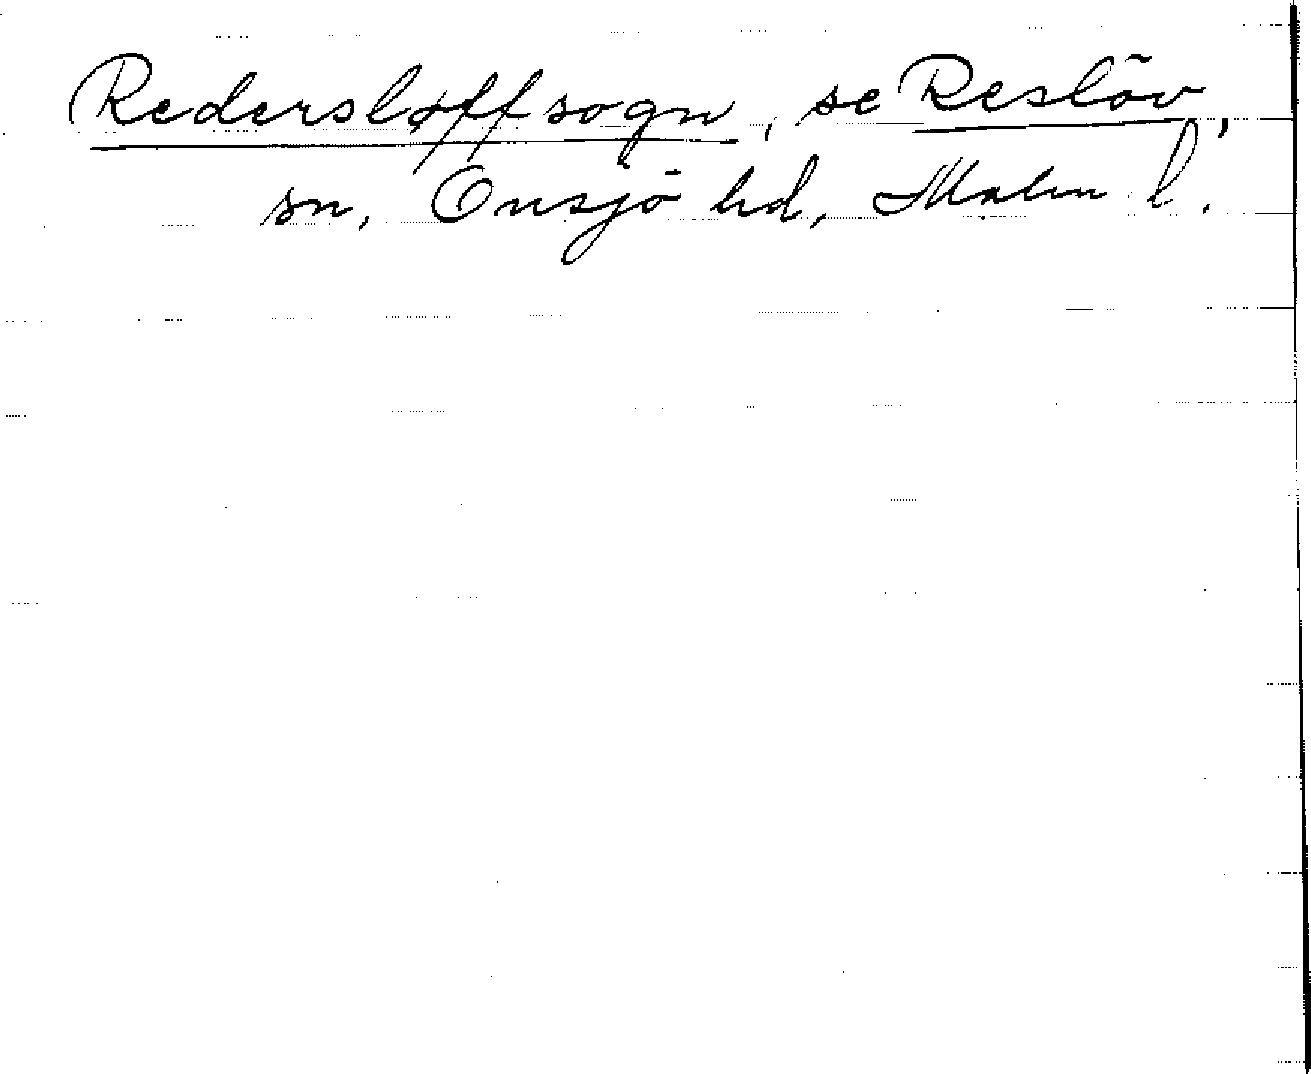 Redersløffsogn, se Reslöv,
sn, Onsjö hd, Malm l.